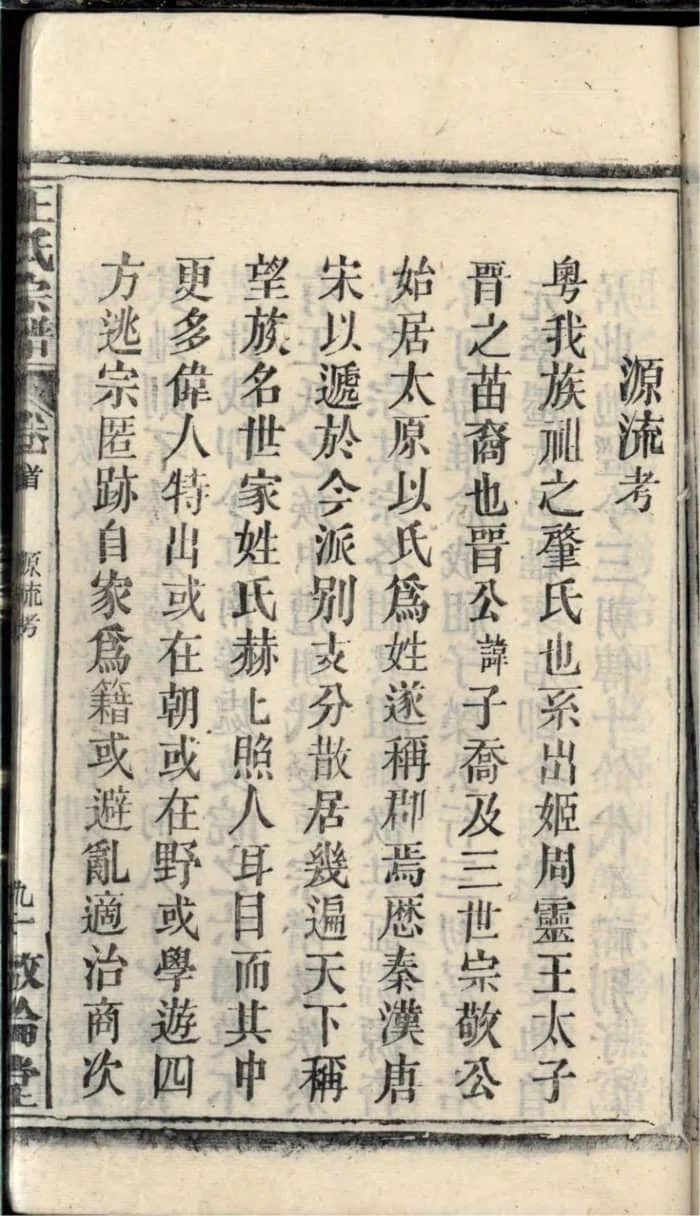 源流考
粵我族祖之肇氏也系出姬周靈王太子
晉之苗裔也晉公諱子喬及三世宗敬公
始居太原以氏爲姓遂稱郡焉歷秦漢唐
宋以遞於今派别支分散居幾遍天下稱
望族名世家姓氏赫匕照人耳目而其中
更多偉人特出或在朝或在野或學遊四
方逃宗匿跡自家爲籍或避亂適治商次
王氏宗譜 卷首 源流考 九一 敦倫堂